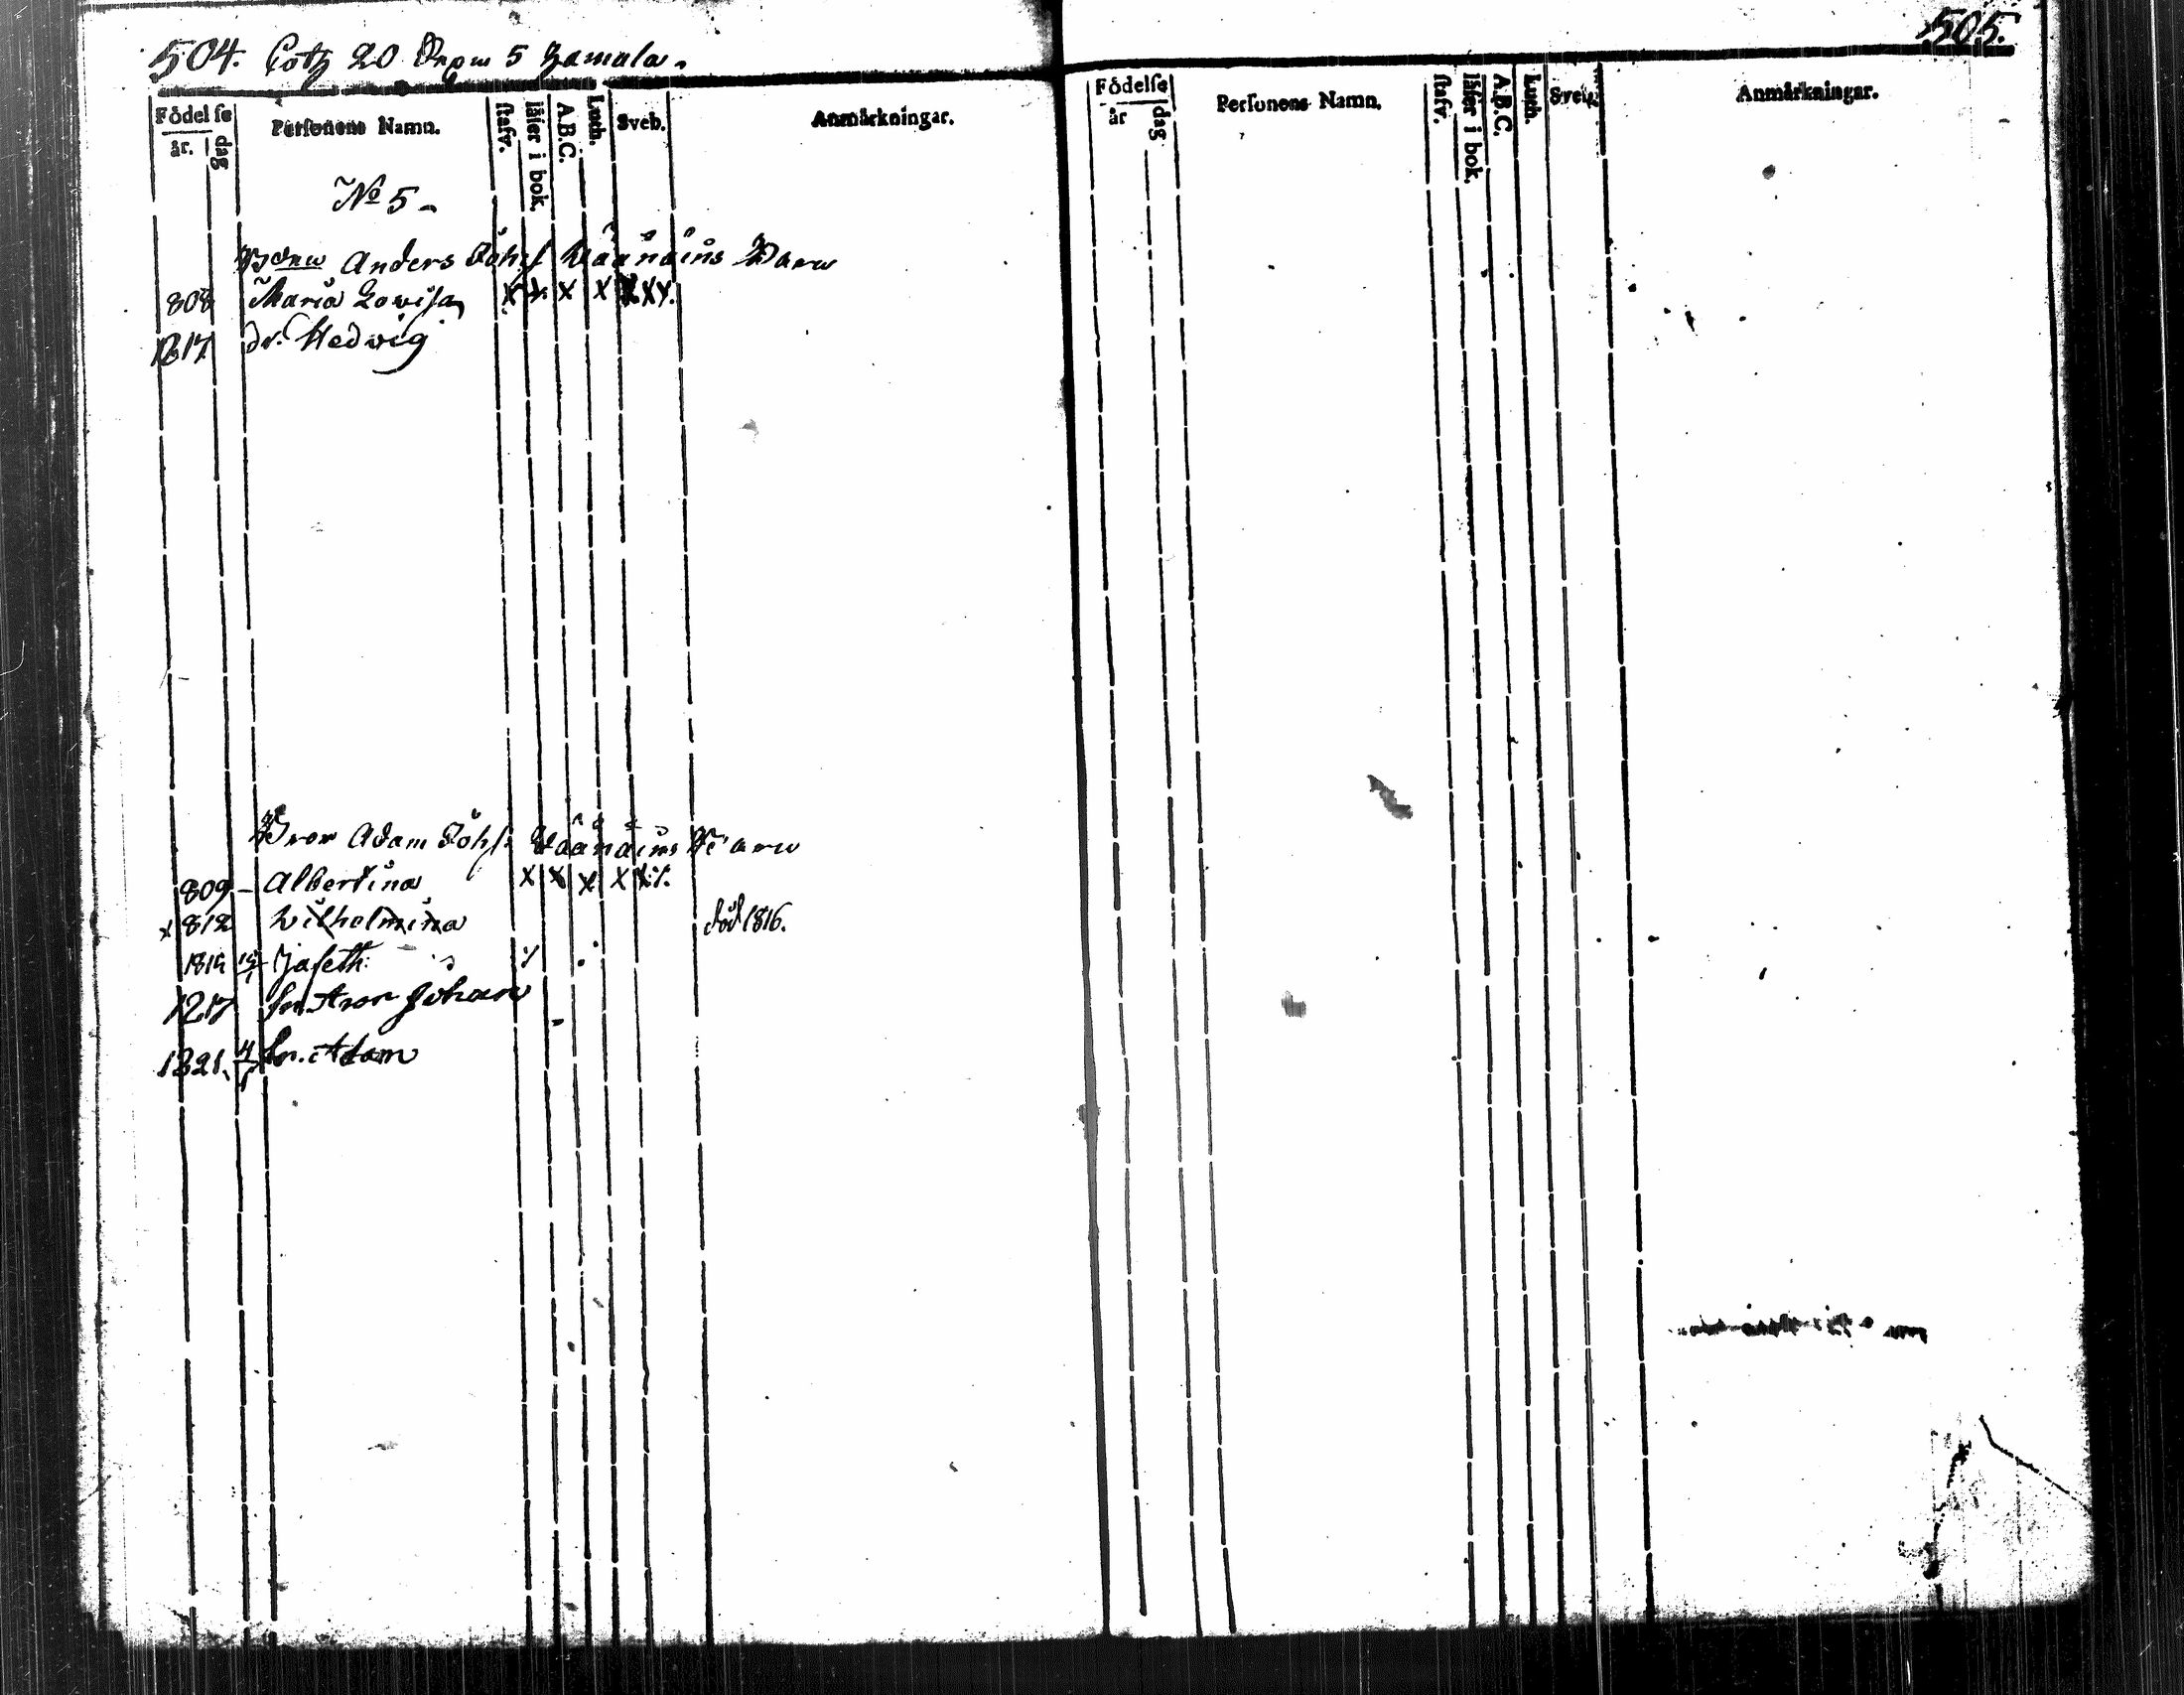 504. Lotz 20 Örpm 5 Hamala.
Födelse
år. dag
Personens Namn.
stafv.
läser i bok.
A.B.C.
Luth.
Sveb.
Anmärkningar.
No 5
Anders Joh:s Wäänäins Barn
808 Maria Lovisa X X X X X X
1817 dr. Hedwig
Adam Johs: Wäänäins Barn
809 - Albertina X X X X X
x 812 Wilhelmina död 1816.
181 Jafeth:
1817 sn. Aron Johan
1821. sn. Adam
505.
Födelse
år dag
Personens Namn.
stafv.
läser i bok.
A.B.C.
Luth.
Sveb.
Anmärkningar.